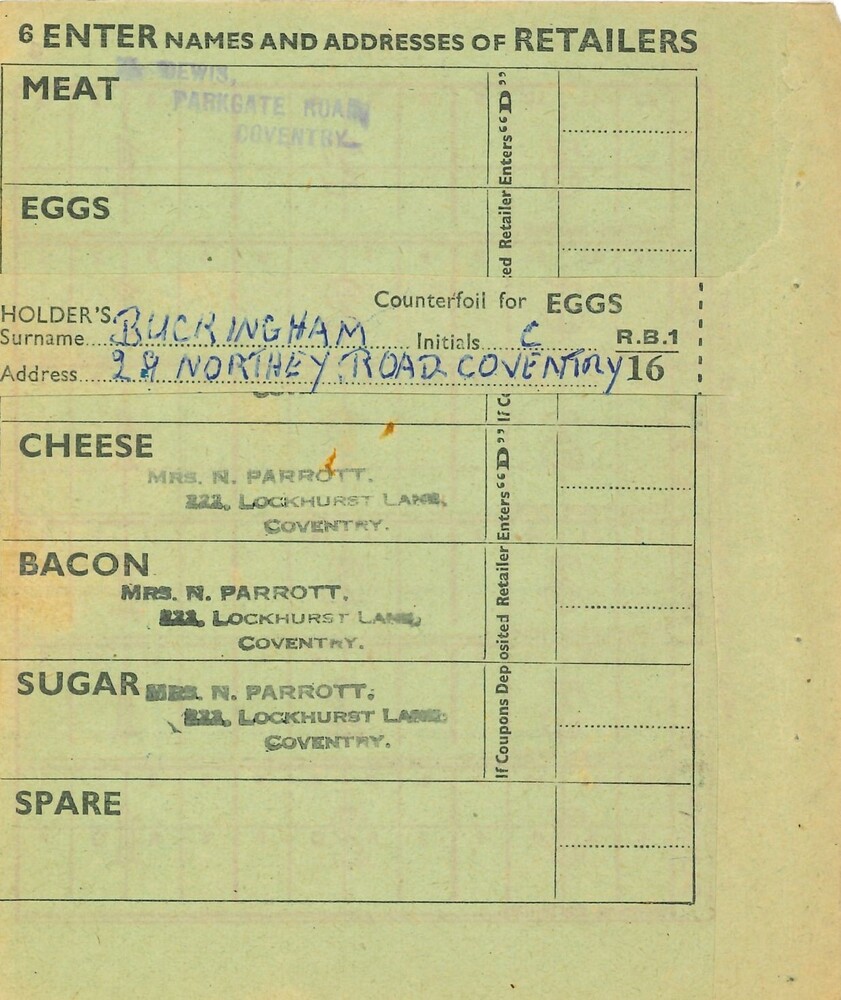 6 ENTER NAMES AND ADDRESSES OF RETAILERS
MEAT
DEWIS,
PARKGATE ROAD
COVENTRY
EGGS
Counterfoil for EGGS
HOLDER'S
Surname BUCKINGHAM Initials C R.B.1
Address 29 NORTHEY ROAD COVENTRY 16
CHEESE
MRS. N. PARROTT.
222, LOCKHURST LANE,
COVENTRY.
BACON
MRS. N. PARROTT.
222, LOCKHURST LANE,
COVENTRY.
SUGAR MRS. N. PARROTT.
222, LOCKHURST LANE,
COVENTRY.
SPARE
ed Retailer Enters "D"
If Coupons Deposited Retailer Enters "D"
If C